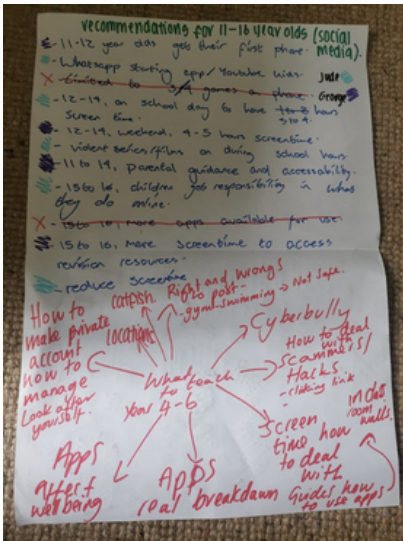 recommendations for 11-16 year olds (social
media).
- 11-12 year olds gets their first phone.
- Whatsapp starting app/Youtube kids.
Jude
X - Limited to 3/4 games on phone.
George
- 12-14, on school day to have hours
Screen time. 3 to 4.
- 12-14, weekend, 4-5 hours screentime.
- violent series/films on during school hours
- 11 to 14, parental guidance and accessability.
- 15 to 16, children got responsibility in what
they do online.
X - 15 to 16, more apps available for use
- 15 to 16, more screentime to access
revision resources.
- reduce screentime
How to
make private
account
how to
manage
Look after
yourself.
catfish.
locations
Right and wrongs
to post -
- gym - swimming → Not safe.
Cyberbully
How to deal
with
Scammers/
Hacks
- clicking link
-
What
to teach
Year 4-6
Screen
time how
to deal
with
Guides how
to use apps
room walls.
Apps
affect
wellbeing
Apps
real breakdown